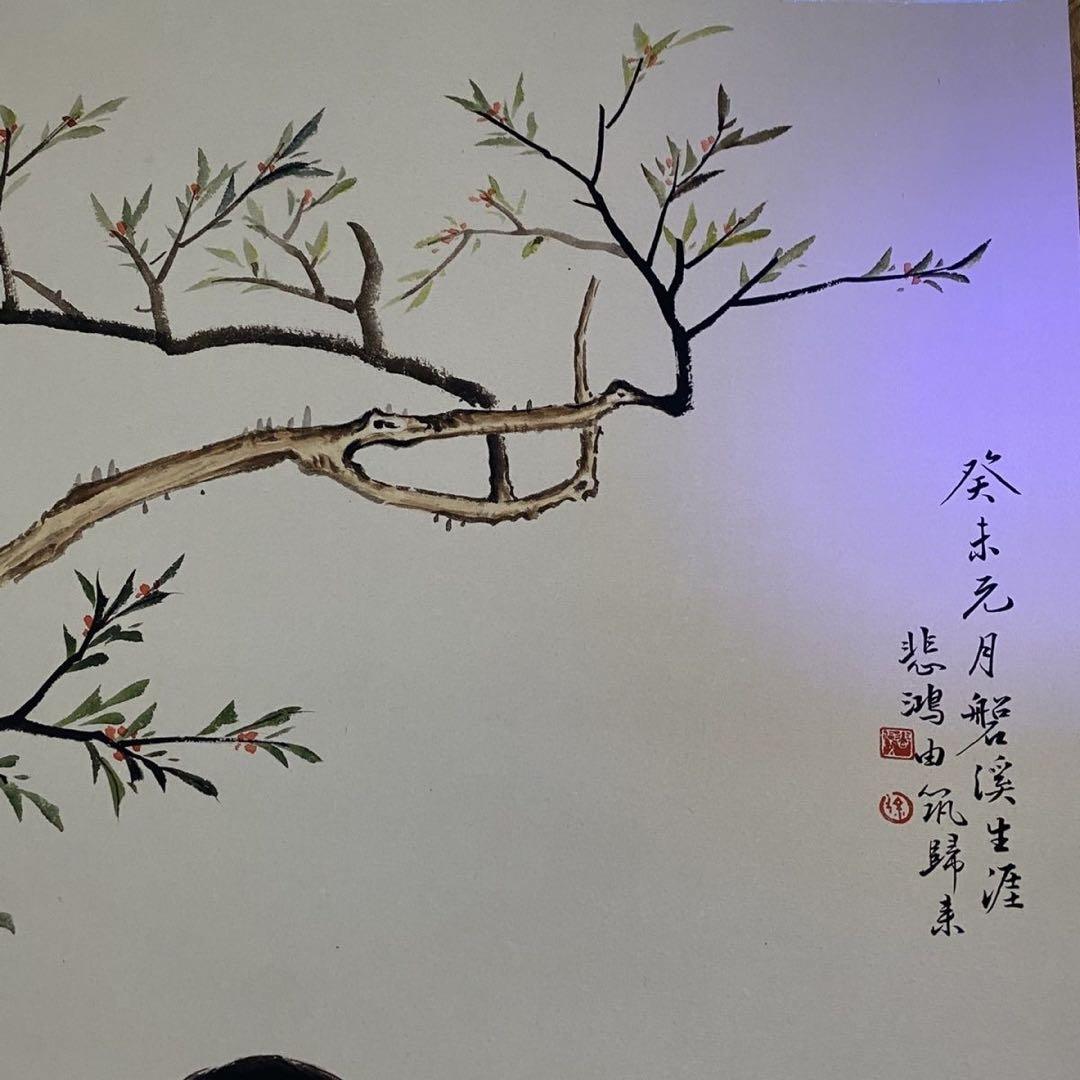 癸未元月磐溪生涯
悲鴻由筑歸来
徐